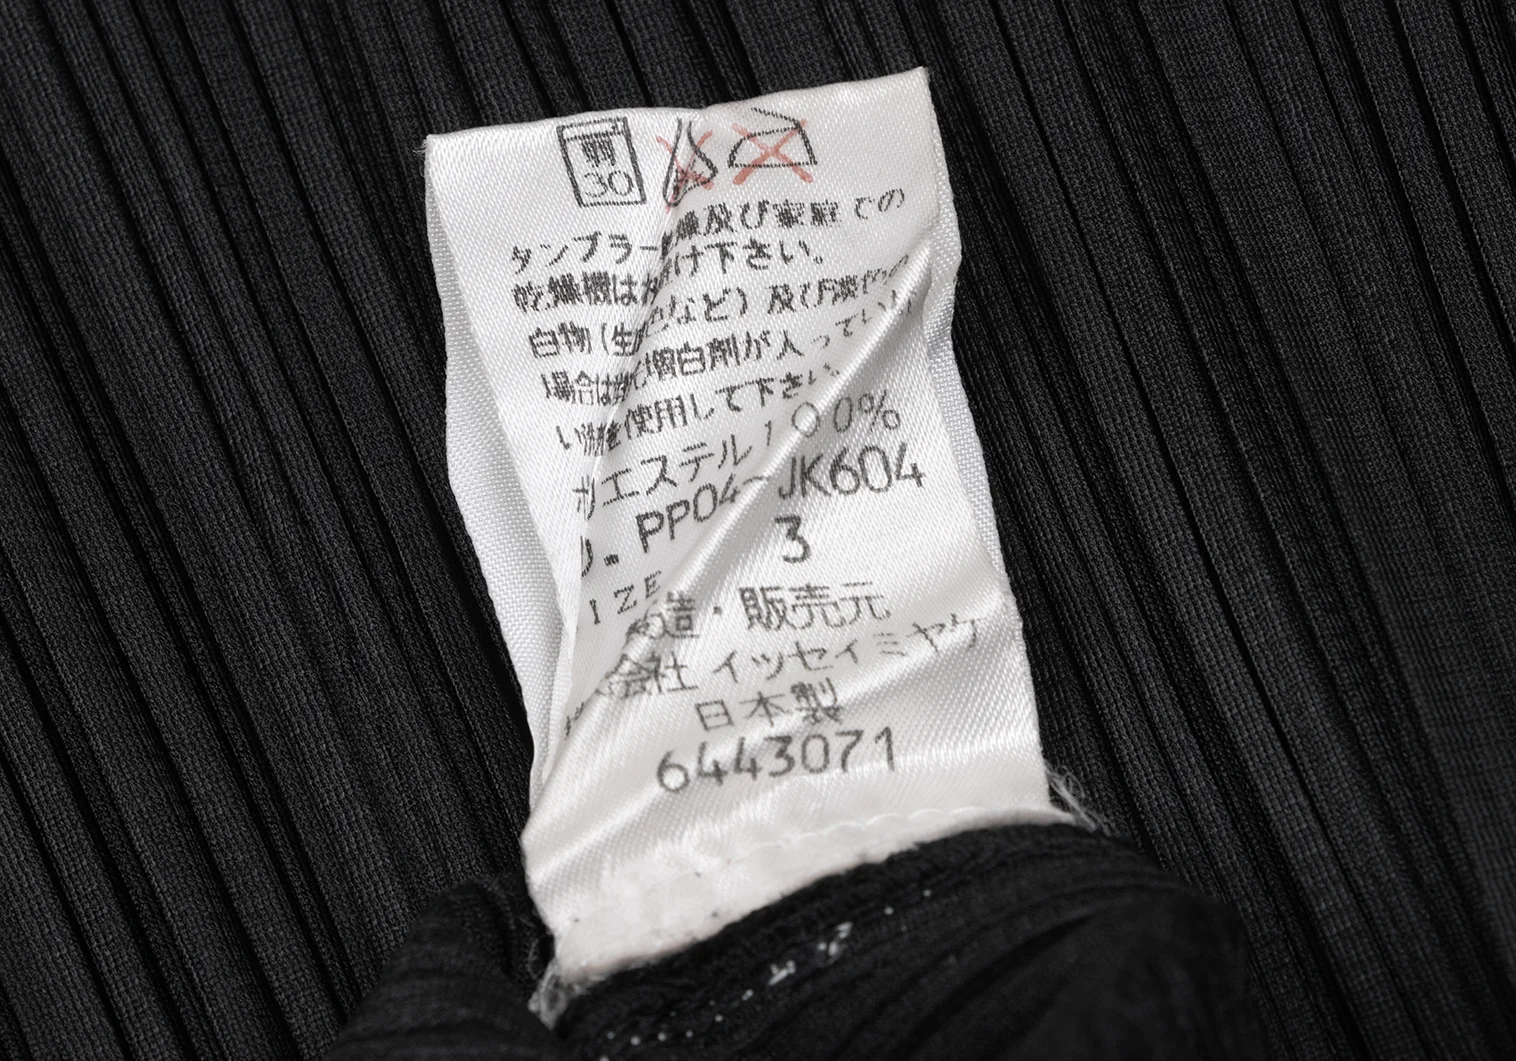 弱
30
タンブラー乾燥及び家庭での
乾燥機はお避け下さい。
白物(生成色など)及び淡色の
場合は蛍光増白剤が入っていな
い洗剤を使用して下さい。
ポリエステル100%
PP04-JK604
IZE 3
造・販売元
会社 イッセイミヤケ
日本製
6443071